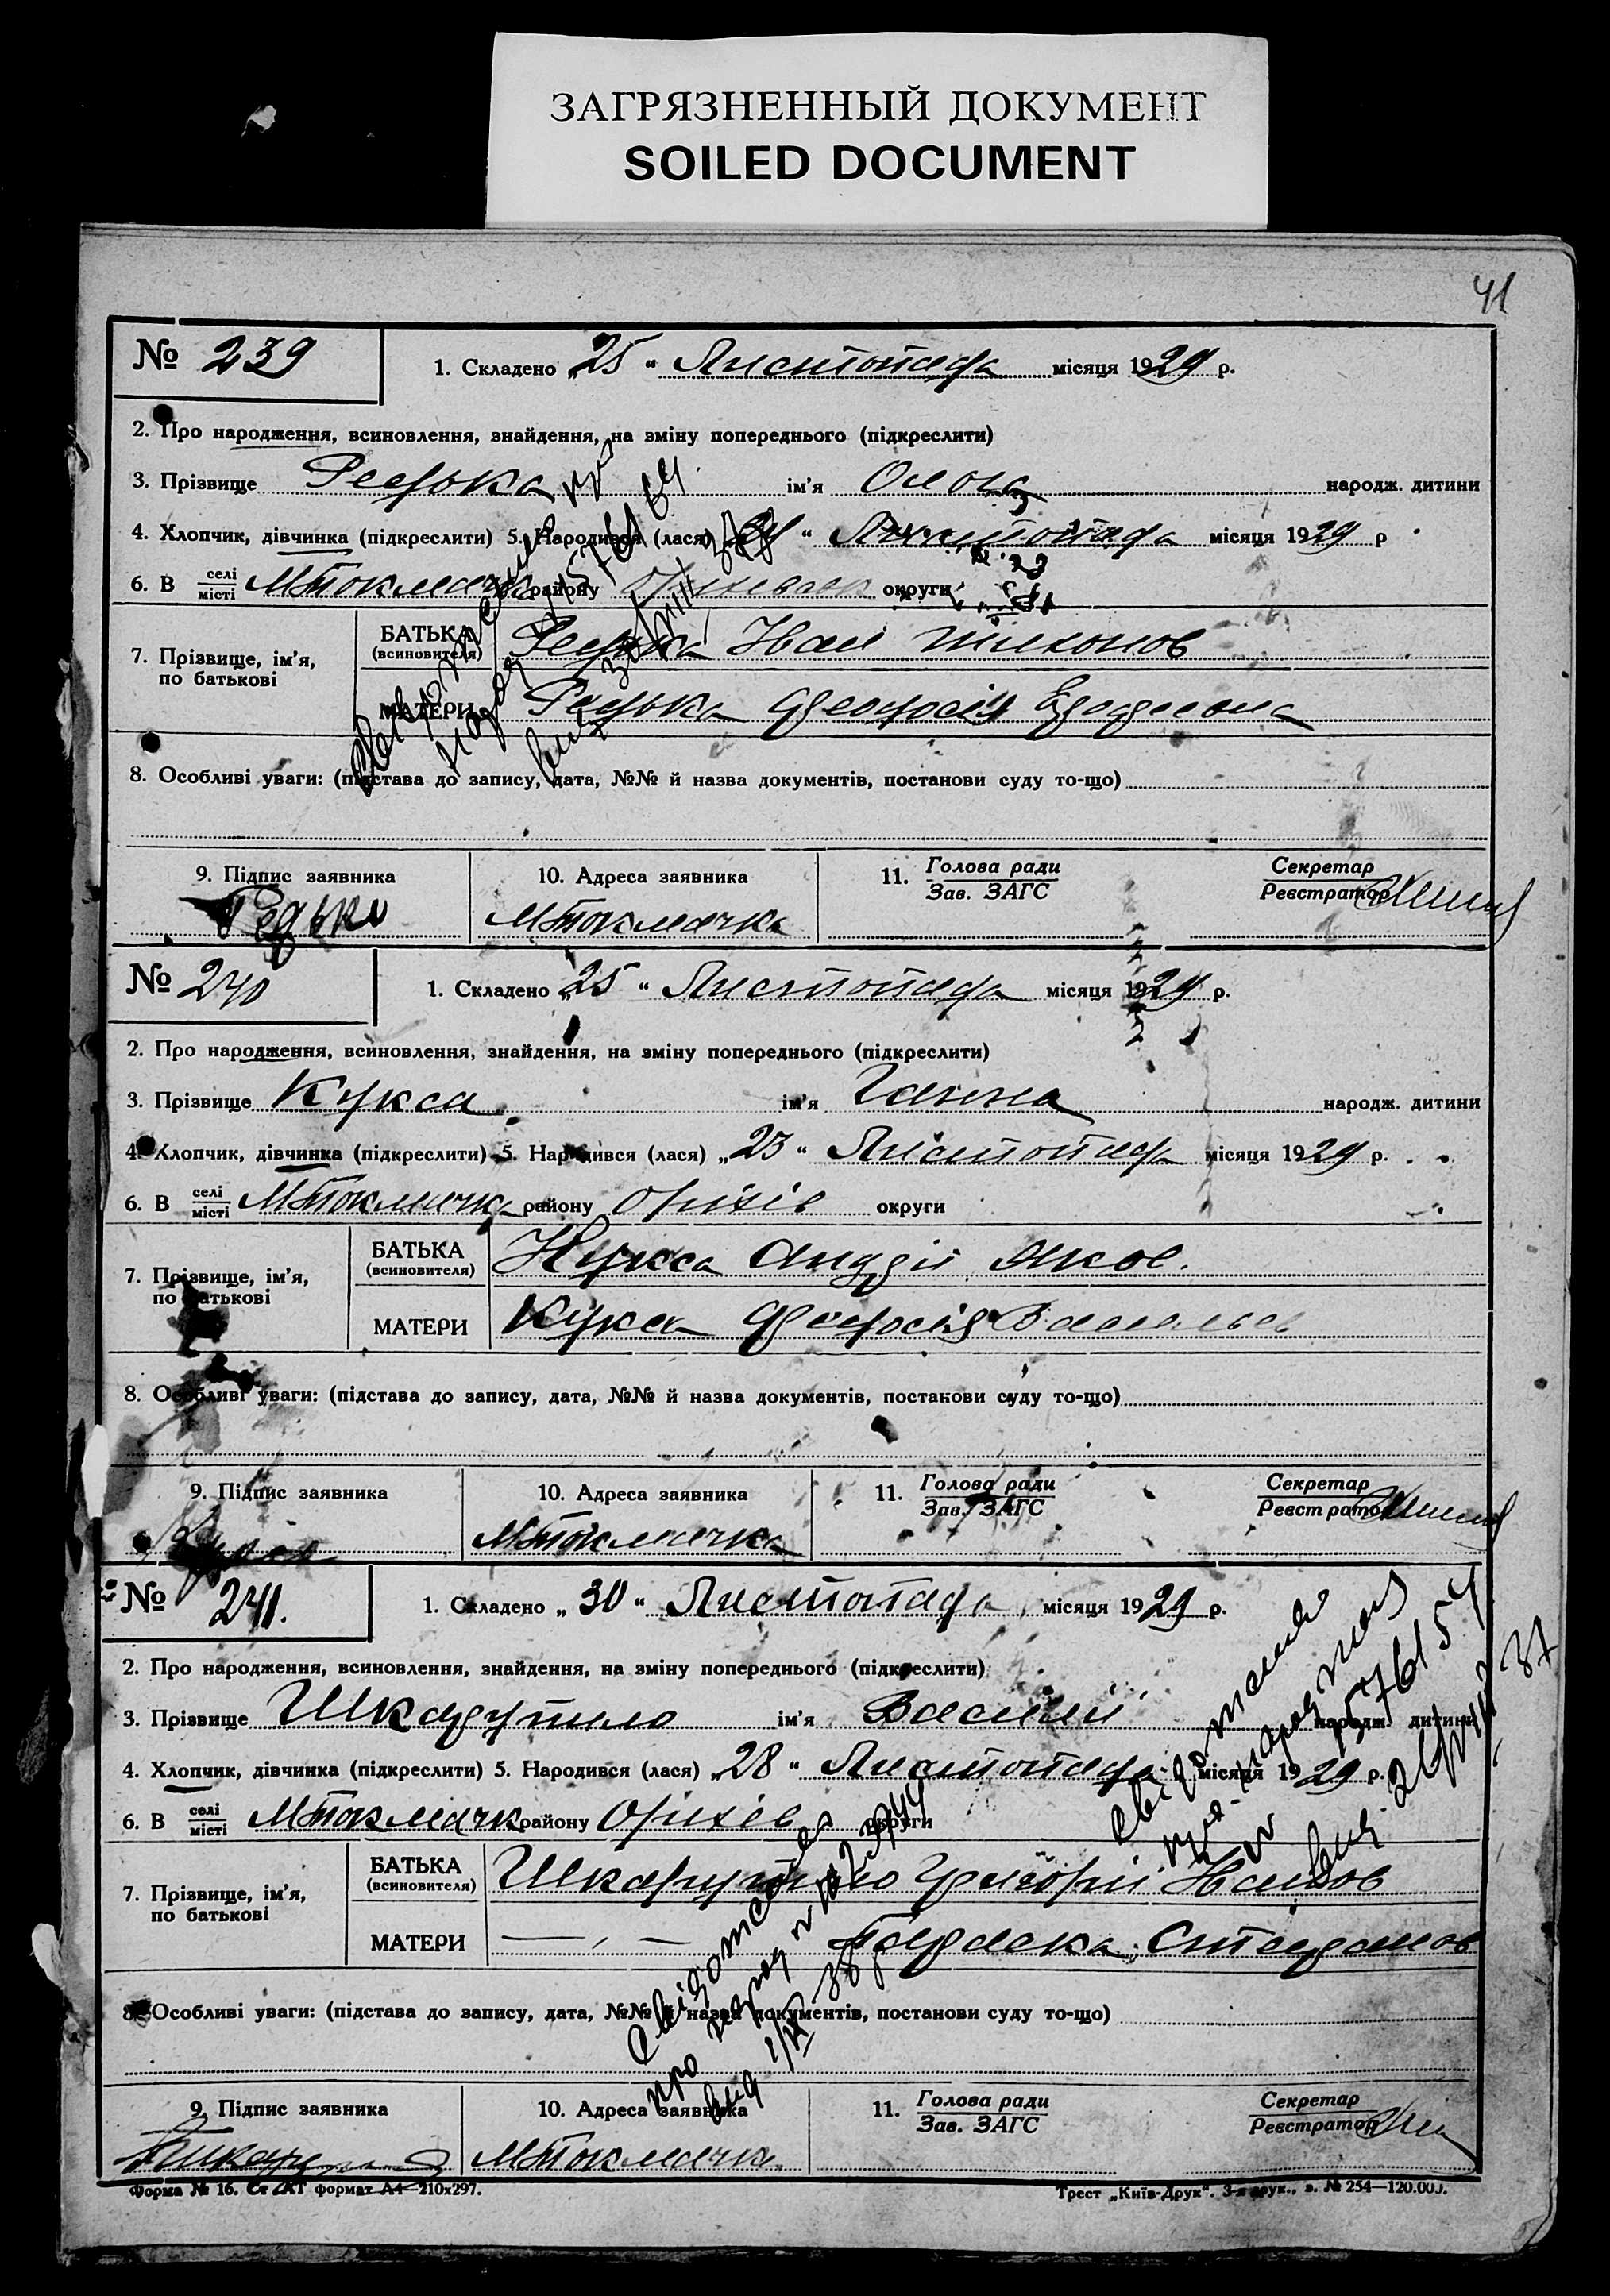 ЗАГРЯЗНЕННЫЙ ДОКУМЕНТ
SOILED DOCUMENT
41
№ 239
1. Складено „25“ Листопада місяця 1929 р.
2. Про народження, всиновлення, знайдення, на зміну попереднього (підкреслити)
3. Прізвище Редька ім'я Ольга народж. дитини
4. Хлопчик, дівчинка (підкреслити) 5. Народився (лася) „24“ Листопада місяця 1929 р
6. В селі місті МТокмачка району округи
7. Прізвище, ім'я, по батькові
БАТЬКА (всиновителя) Редька Иван Тихонов
МАТЕРИ Редька Феодосія
8. Особливі уваги: (підстава до запису, дата, №№ й назва документів, постанови суду то-що)
9. Підпис заявника Редько
10. Адреса заявника МТокмачка
11. Голова ради Зав. ЗАГС
Секретар Реєстратор
№ 240
1. Складено „25“ Листопада місяця 1929 р.
2. Про народження, всиновлення, знайдення, на зміну попереднього (підкреслити)
3. Прізвище Кукса ім'я Ганна народж. дитини
4. Хлопчик, дівчинка (підкреслити) 5. Народився (лася) „23“ Листопада місяця 1929 р.
6. В селі місті МТокмачка району Оріхів округи
7. Прізвище, ім'я, по батькові
БАТЬКА (всиновителя) Кукса Андрій Яков.
МАТЕРИ Кукса Феодосія Васильев
8. Особливі уваги: (підстава до запису, дата, №№ й назва документів, постанови суду то-що)
9. Підпис заявника
10. Адреса заявника МТокмачка
11. Голова ради Зав. ЗАГС
Секретар Реєстратор
№ 241.
1. Складено „30“ Листопада місяця 1929 р.
2. Про народження, всиновлення, знайдення, на зміну попереднього (підкреслити)
3. Прізвище Шкарупило ім'я Василий народж. дитини
4. Хлопчик, дівчинка (підкреслити) 5. Народився (лася) „28“ Листопада місяця 1929 р.
6. В селі місті МТокмачк району Оріхів округи
7. Прізвище, ім'я, по батькові
БАТЬКА (всиновителя) Шкарупило Григорій Иванов
МАТЕРИ — „ —
8. Особливі уваги: (підстава до запису, дата, №№ й назва документів, постанови суду то-що)
9. Підпис заявника
10. Адреса заявника МТокмачка
11. Голова ради Зав. ЗАГС
Секретар Реєстратор
Форма № 16. формат А4—210х297.
Трест „Київ-Друк“. 3-я друк., з. № 254—120.000.